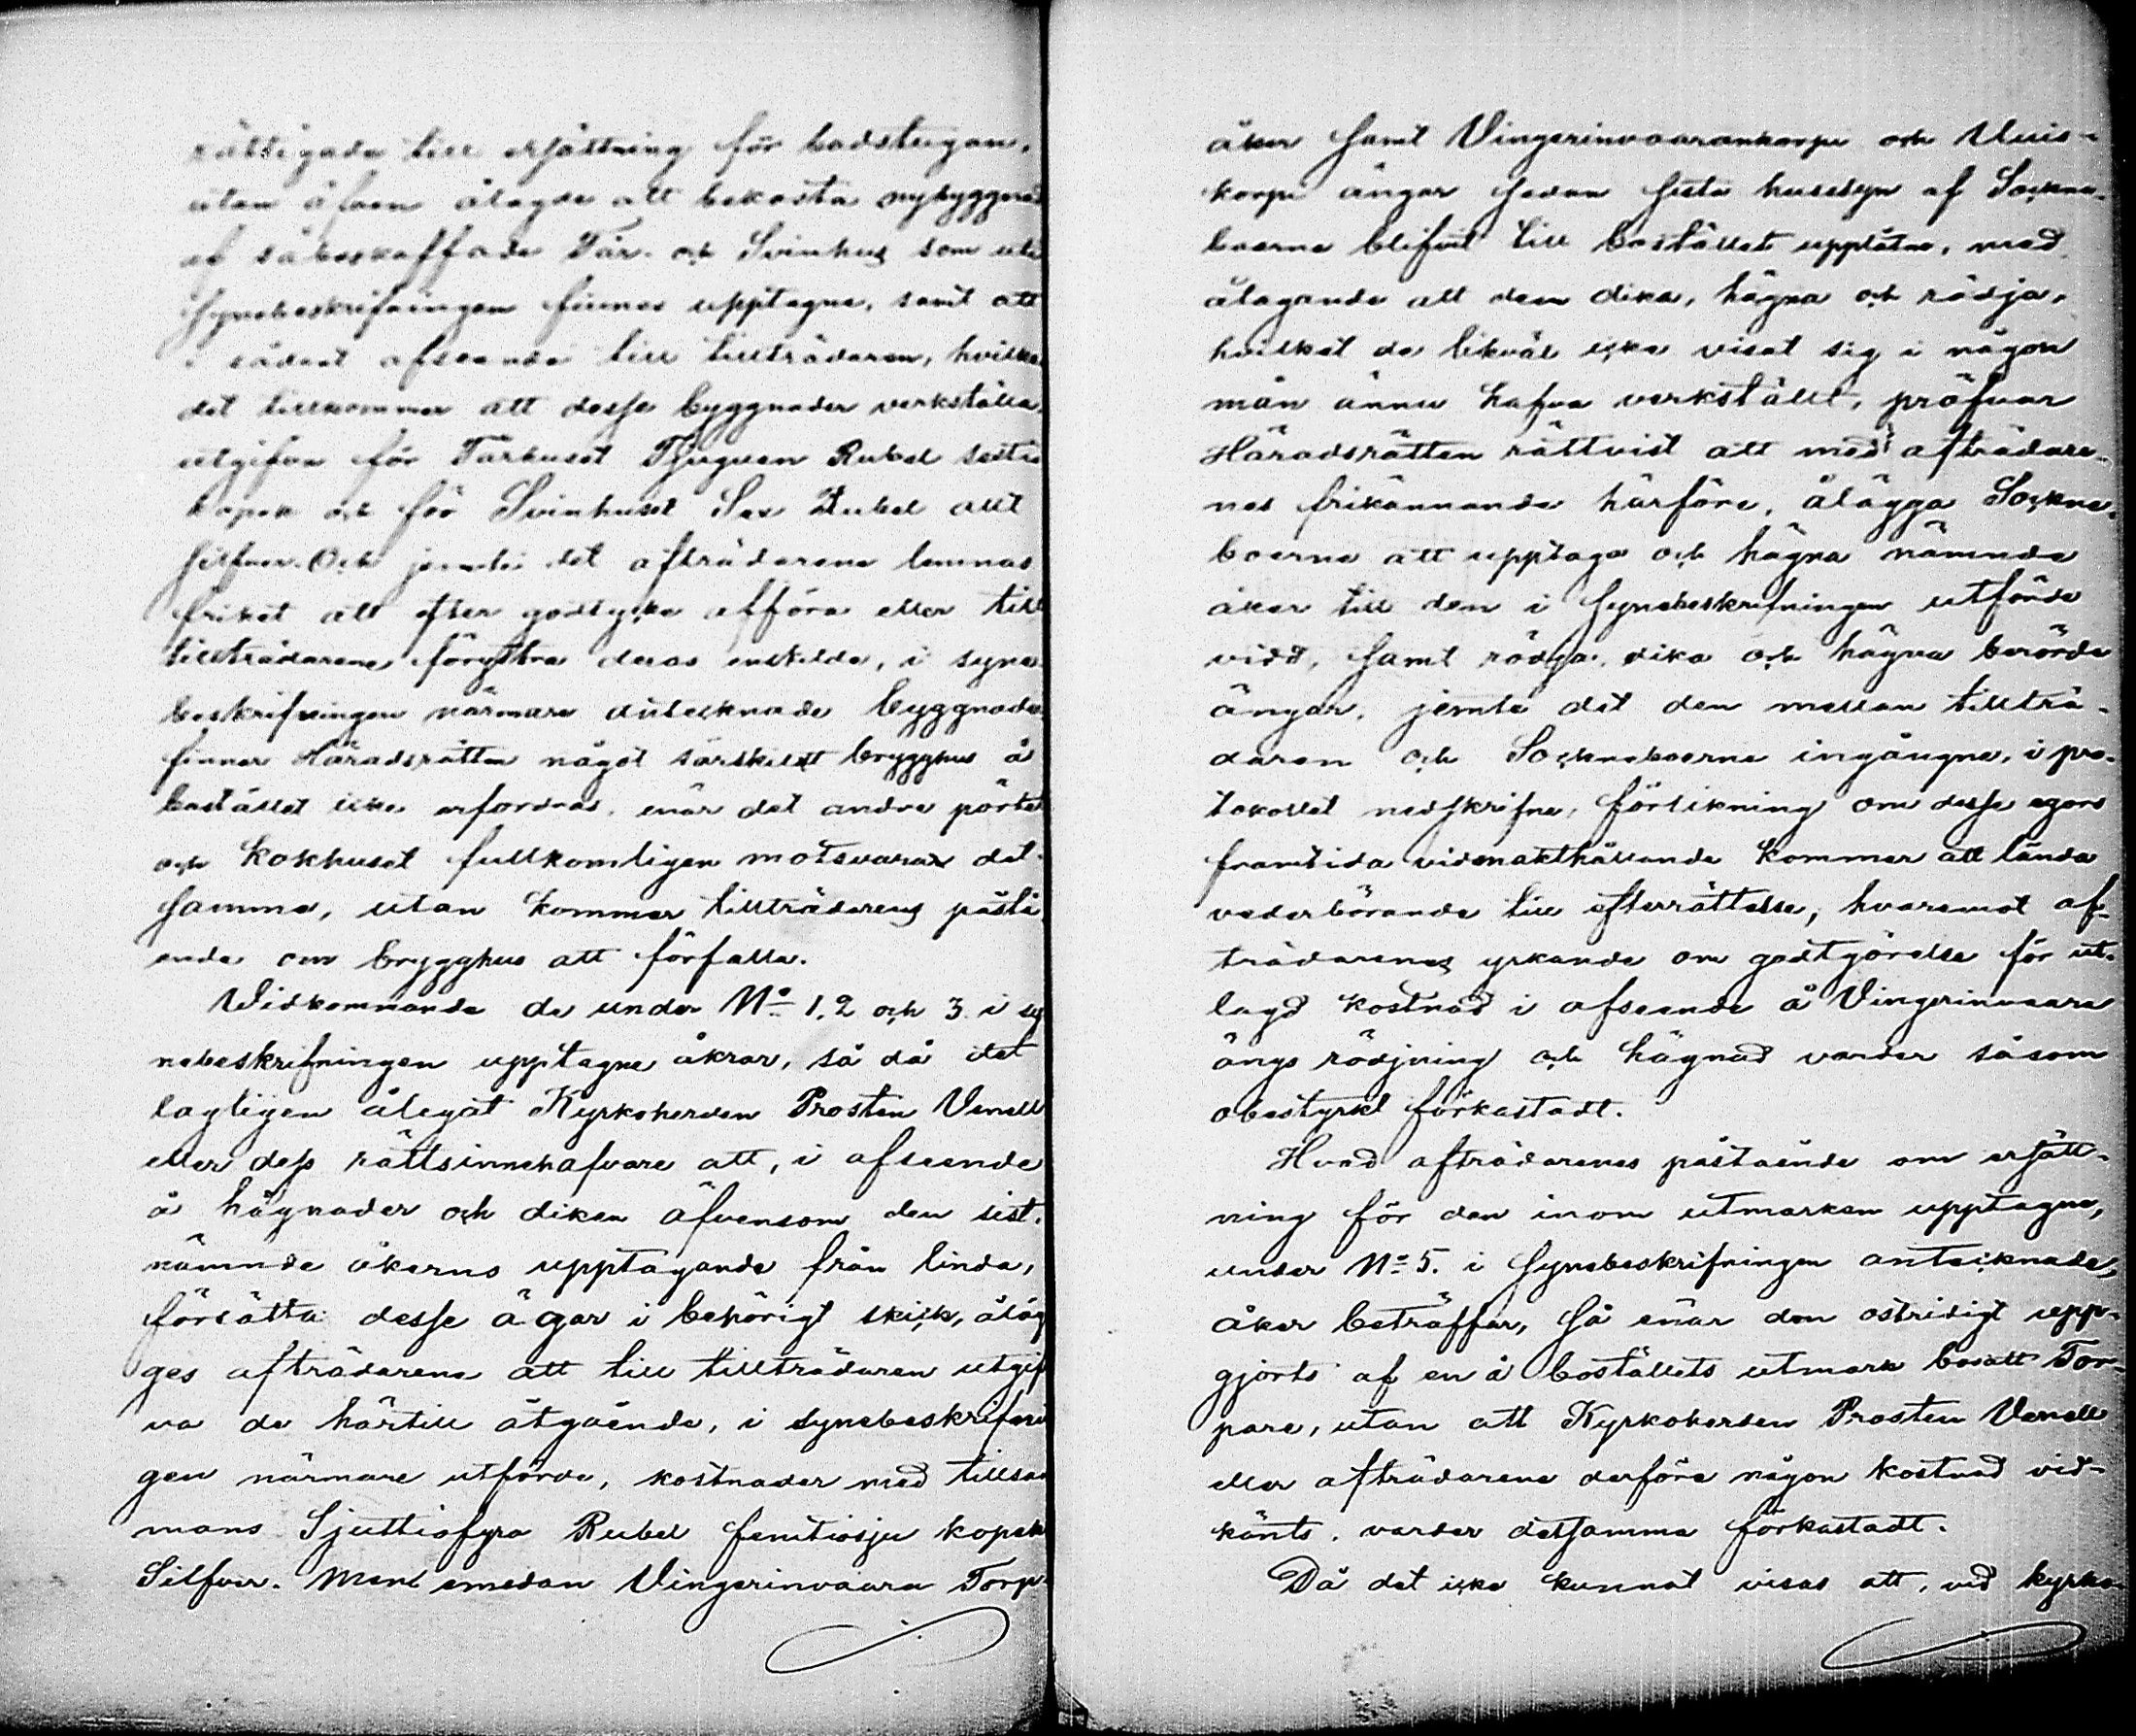 rättigade till ersättning för badstugan,
utan äfven ålagde att bekosta nybyggnad
af såbeskaffade Får- och Svinhus som uti
Synebeskrifningen finnes upptagne, samt att
i sådant afseende till tillträdaren, hvilken
det tillkommer att desse byggnader verkställa,
utgifva för Fårhuset Tjuguen Rubel sextio
kopek och för Svinhuset Sex Rubel allt
Silfver. Och jemte det afträdarene lemnas
frihet att efter godtycke afföra eller till
tillträdarene föryttra deras enskilda, i syne-
beskrifningen närmare antecknade byggnader
finner Häradsrätten något särskildt brygghus å
bostället icke erfordras, enär det andra pörtet
och kokhuset fullkomligen motsvarar det-
samma, utan kommer tillträdarens påstå-
ende om brygghus att förfalla.
Widkommande de under No 1, 2 och 3 i sy
nebeskrifningen upptagne åkrar, så då det
lagligen ålegat Kyrkoherden Prosten Venell
eller dess rättsinnehafvare att, i afseende
å hägnader och diken äfvensom den sist-
nämnde åkerns upptagande från linda,
försätta desse ägor i behörigt skick, åläg
ges afträdarene att till tillträdaren utgif
va de härtill åtgående, i synebeskrifnin
gen närmare utförde, kostnader med tillsam
mans Sjuttiofyra Rubel femtiosju kopek
Silfver. Men emedan Vingerinvaara Torp
åker samt Vingerinvaarankorpi och Uuis-
korpi ängar sedan sista husesyn af Sockne-
boerne blifvit till bostället upplåtne, med
åliggande att dem dika, hägna och rödja,
hvilket de likväl icke visat sig i någon
mån ännu hafva verkställt, pröfvar
Häradsrätten rättvist att med afträdare-
nes frikännande härföre, ålägga Sockne-
boerne att upptaga och hägna nämnde
åker till den i Synebeskrifningen utförde
vidd, samt rödja, dika och hägna berörde
ängar, jemte det den mellan tillträ-
daren och Sockneboerne ingångne, i pro-
tokollet nedskrifne, förlikning om desse egors
framtida vidmakthållande kommer att lända
vederbörande till efterrättelse; hvaremot af-
trädarenes yrkande om godtgörelse för ut-
lagd kostnad i afseende å Vingerinvaara
ängs rödjning och hägnad varder såsom
obestyrkt förkastadt.
Hvad afträdarenes påstående om ersätt-
ning för den inom utmarken upptagne,
under No 5. i Synebeskrifningen antecknade,
åker beträffar, så enär den ostridigt upp-
gjorts af en å boställets utmark bosatt Tor-
pare, utan att Kyrkoherden Prosten Venell
eller afträdarene derföre någon kostnad vid-
känts, varder detsamma förkastadt.
Då det icke kunnat visas att, vid kyrko-